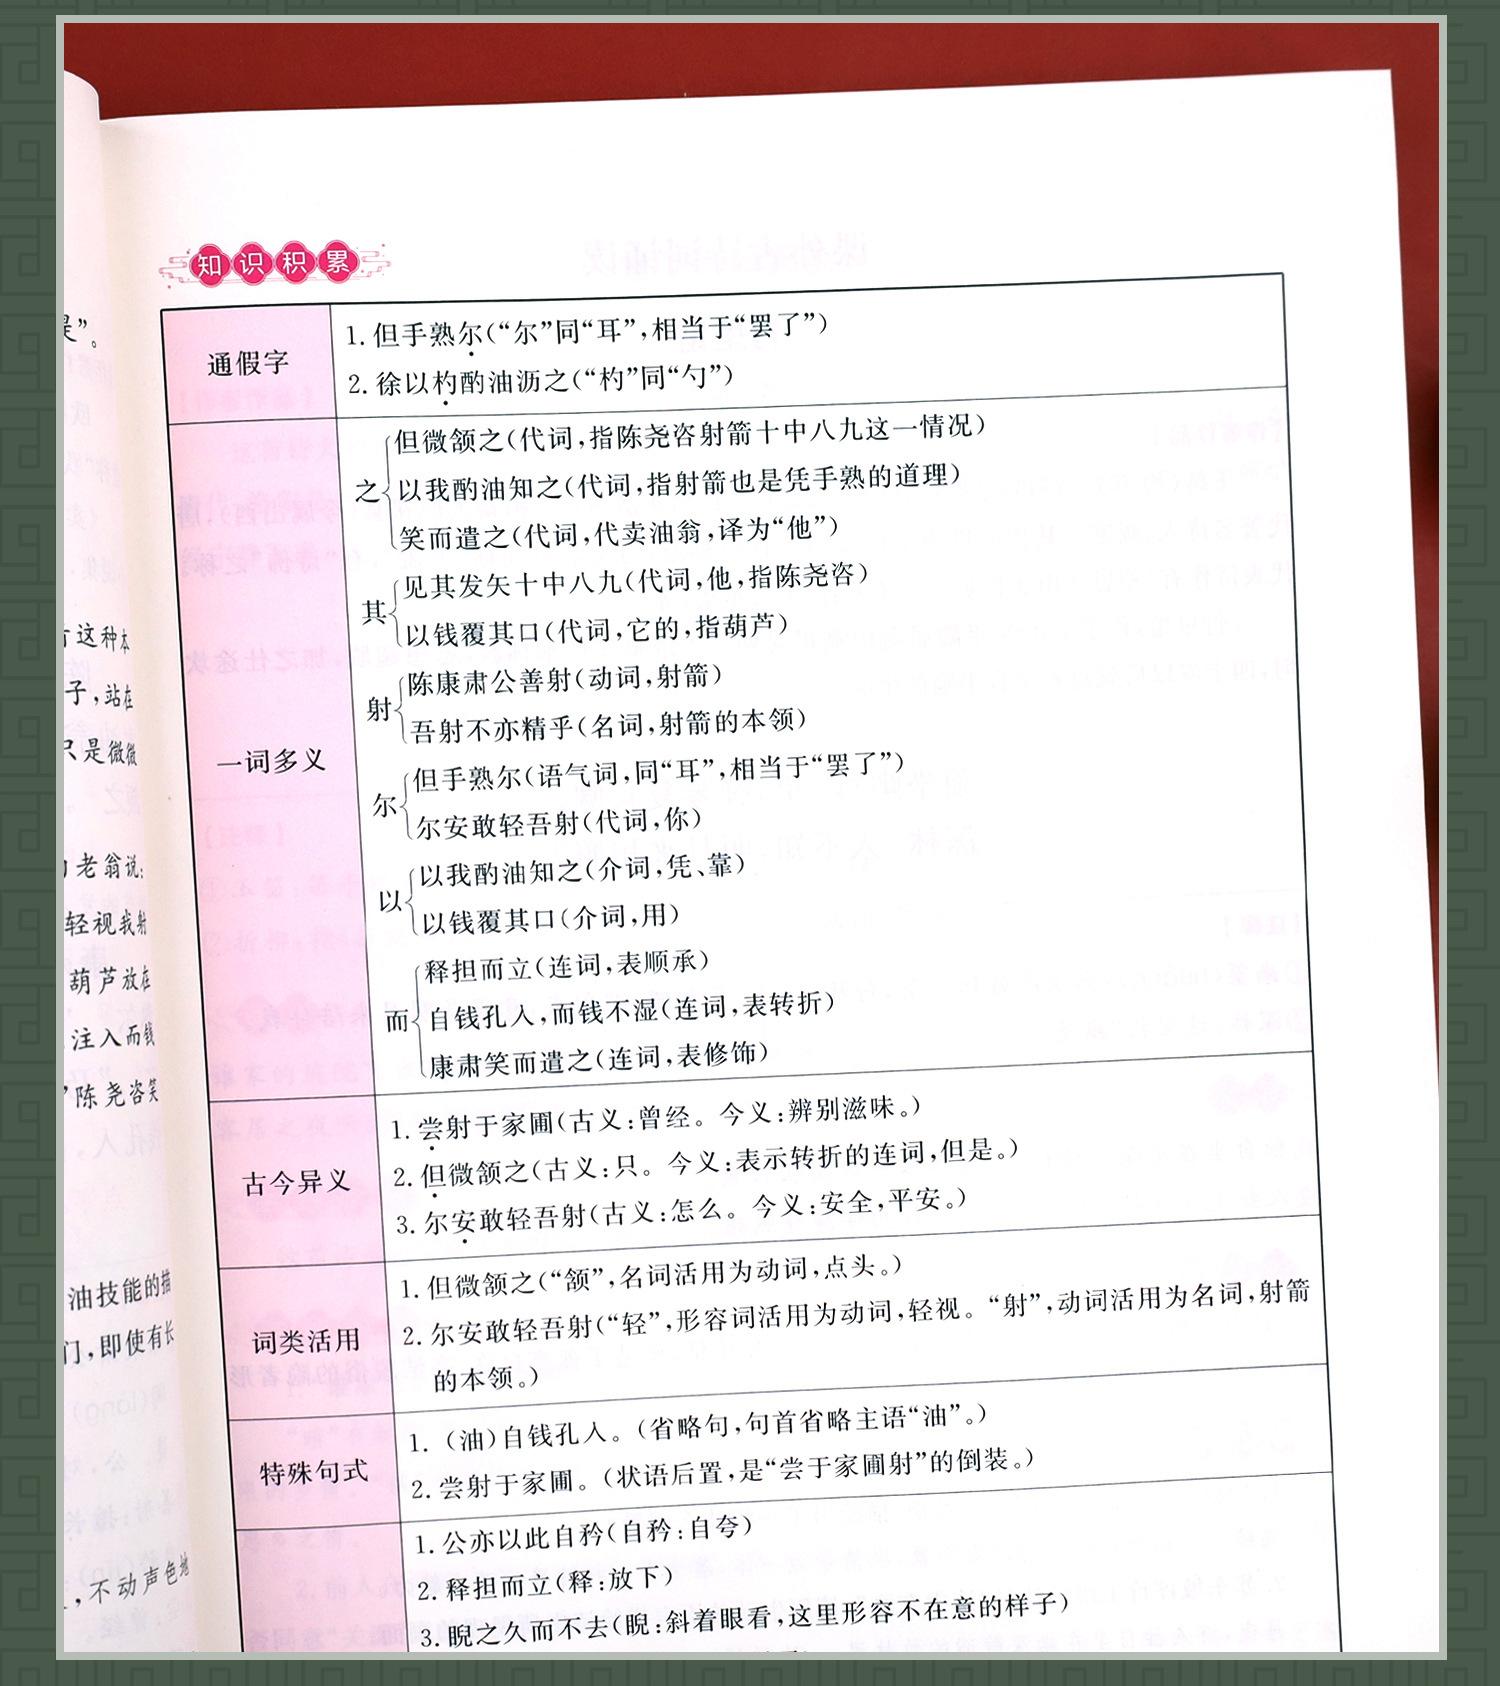 知识积累
通假字
1. 但手熟尔(“尔”同“耳”,相当于“罢了”)
2. 徐以杓酌油沥之(“杓”同“勺”)
一词多义
之
但微颔之(代词,指陈尧咨射箭十中八九这一情况)
以我酌油知之(代词,指射箭也是凭手熟的道理)
笑而遣之(代词,代卖油翁,译为“他”)
其
见其发矢十中八九(代词,他,指陈尧咨)
以钱覆其口(代词,它的,指葫芦)
射
陈康肃公善射(动词,射箭)
吾射不亦精乎(名词,射箭的本领)
尔
但手熟尔(语气词,同“耳”,相当于“罢了”)
尔安敢轻吾射(代词,你)
以
以我酌油知之(介词,凭、靠)
以钱覆其口(介词,用)
而
释担而立(连词,表顺承)
自钱孔入,而钱不湿(连词,表转折)
康肃笑而遣之(连词,表修饰)
古今异义
1. 尝射于家圃(古义:曾经。今义:辨别滋味。)
2. 但微颔之(古义:只。今义:表示转折的连词,但是。)
3. 尔安敢轻吾射(古义:怎么。今义:安全,平安。)
词类活用
1. 但微颔之(“颔”,名词活用为动词,点头。)
2. 尔安敢轻吾射(“轻”,形容词活用为动词,轻视。“射”,动词活用为名词,射箭
的本领。)
特殊句式
1. (油)自钱孔入。(省略句,句首省略主语“油”。)
2. 尝射于家圃。(状语后置,是“尝于家圃射”的倒装。)
1. 公亦以此自矜(自矜:自夸)
2. 释担而立(释:放下)
3. 睨之久而不去(睨:斜着眼看,这里形容不在意的样子)
”。
这种本
子,站在
只是微微
老翁说:
轻视我射
葫芦放在
注入而钱
”陈尧咨笑
油技能的描
们,即使有长
,不动声色地